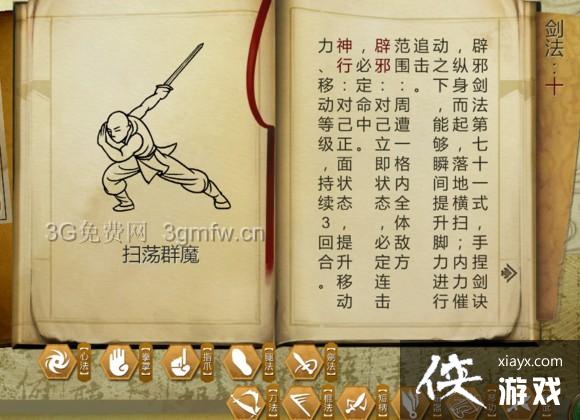 剑法：十
辟邪剑法第七十一式，手捏剑诀
，纵身而起，落地横扫；内力催
动之下，能够瞬间提升脚力进行
追击。
范围：周遭一格内全体敌方
辟邪：对己立即状态，必定连击
，必定命中。
神行：对己正面状态，提升移动
力、移动等级，持续3回合。
3G免费网 3gmfw.cn
扫荡群魔
【心法】
【拳掌】
【指爪】
【腿法】
【剑法】
【刀法】
【棍法】
【短柄】
侠游戏
xiayx.com